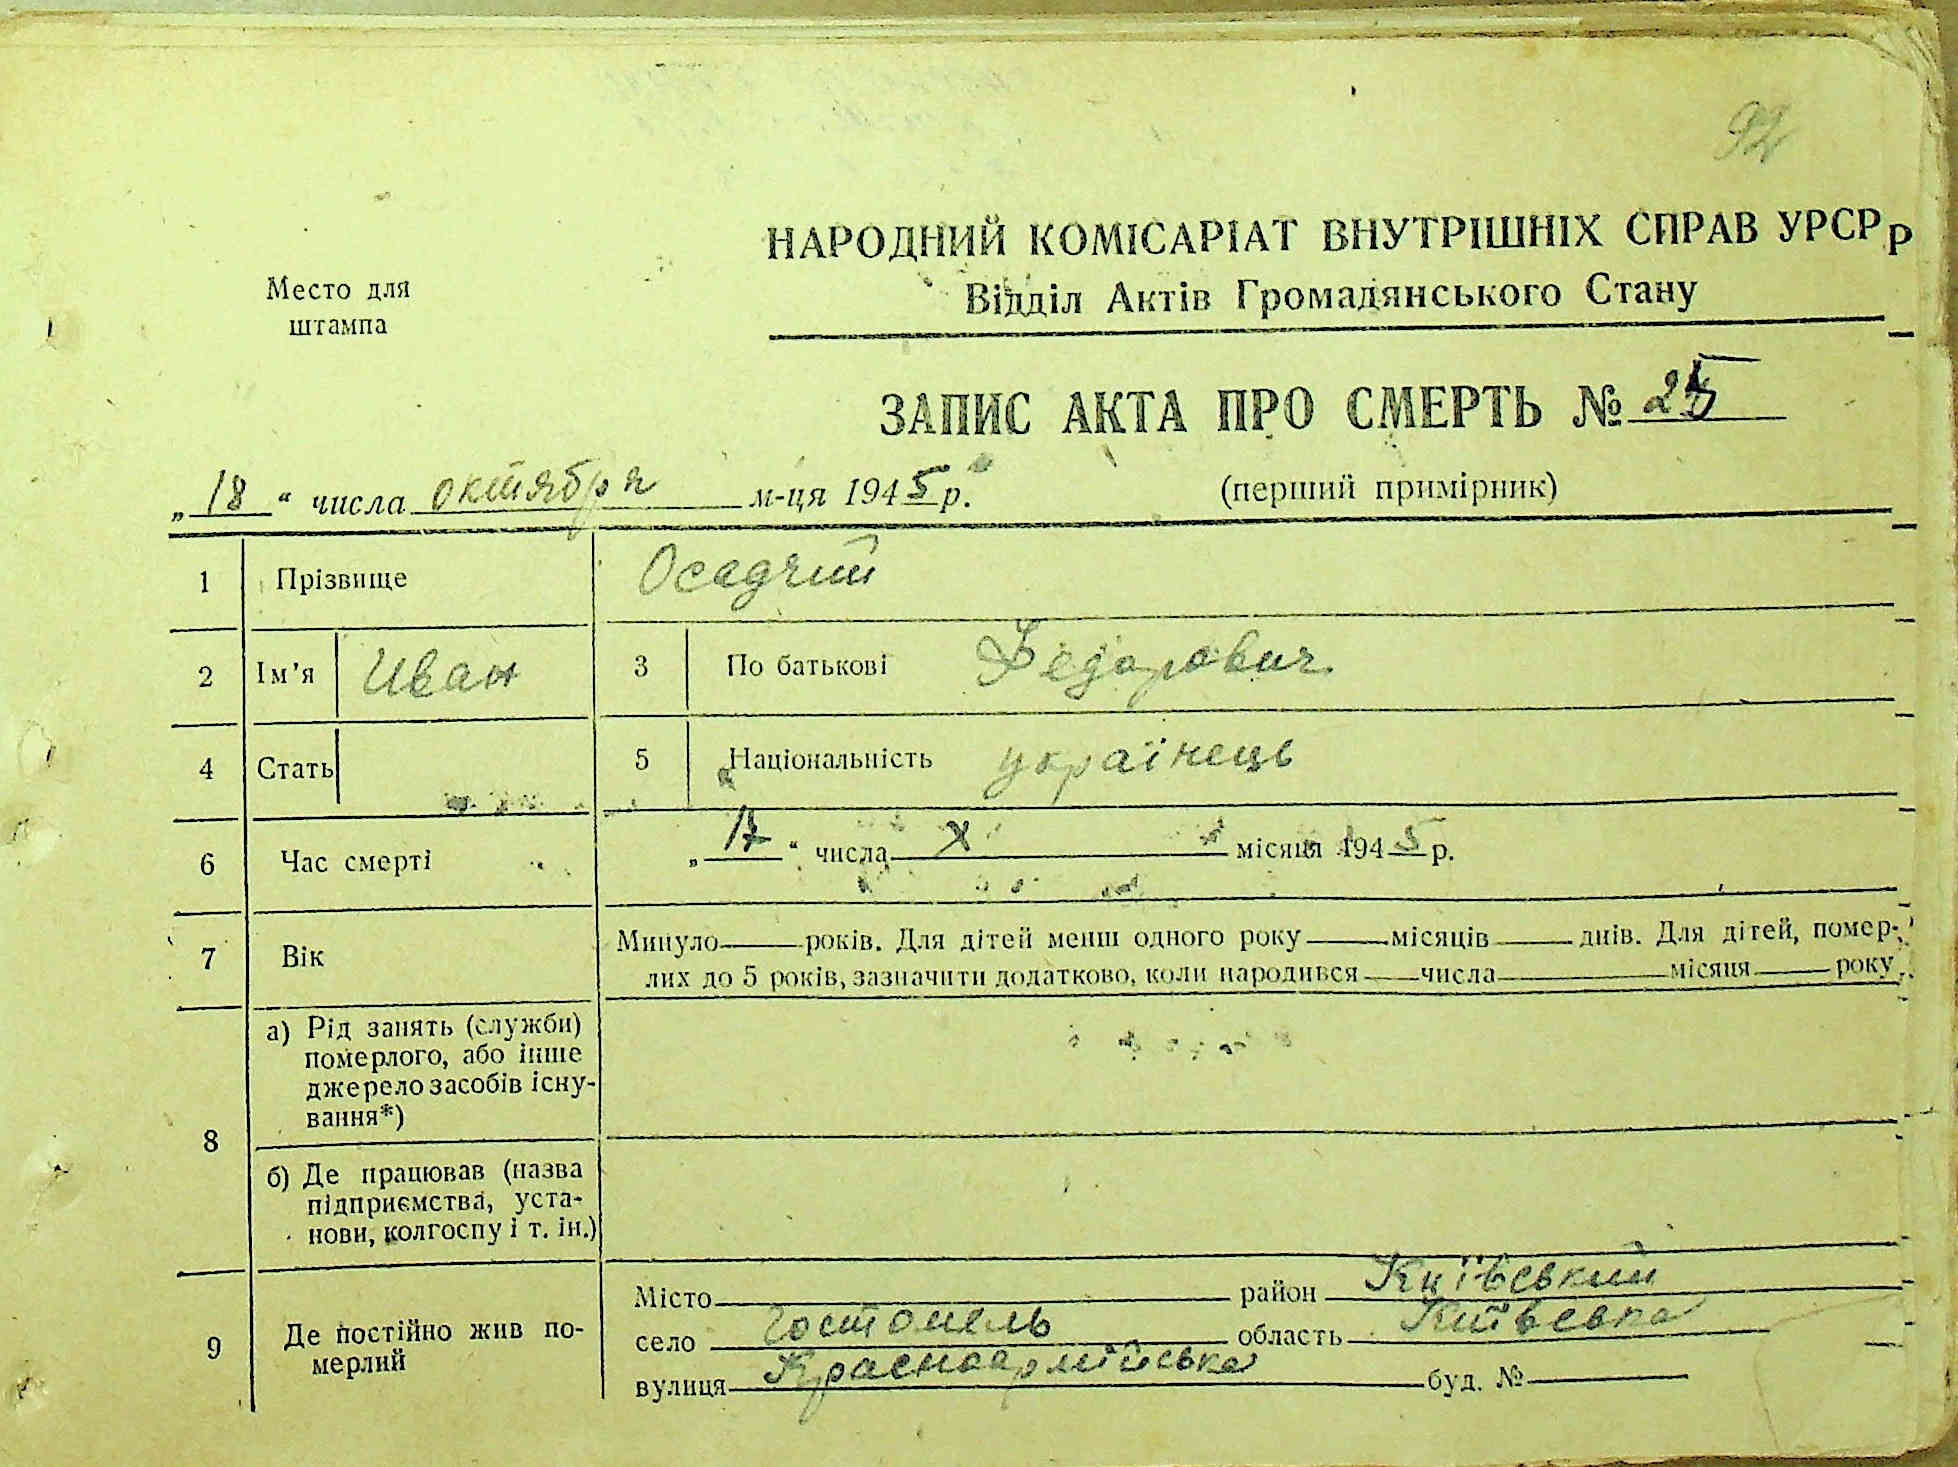 92
НАРОДНИЙ КОМІСАРІАТ ВНУТРІШНІХ СПРАВ УРСР р
Відділ Актів Громадянського Стану
Место для
штампа
ЗАПИС АКТА ПРО СМЕРТЬ № 25
„18“ числа октября м-ця 1945 р.
(перший примірник)
1 Прізвище Осадчий
2 Ім’я Иван 3 По батькові Федорович
4 Стать 5 Національність українець
6 Час смерті „17“ числа X місяця 1945 р.
7 Вік Минуло років. Для дітей менш одного року місяців днів. Для дітей, помер-
лих до 5 років, зазначити додатково, коли народився числа місяця року
8 а) Рід занять (служби)
померлого, або інше
джерело засобів існу-
вання*)
б) Де працював (назва
підприємства, уста-
нови, колгоспу і т. ін.)
9 Де постійно жив по-
мерлий
Місто район Київський
село Гостомель область Київська
вулиця Красноармійська буд. №